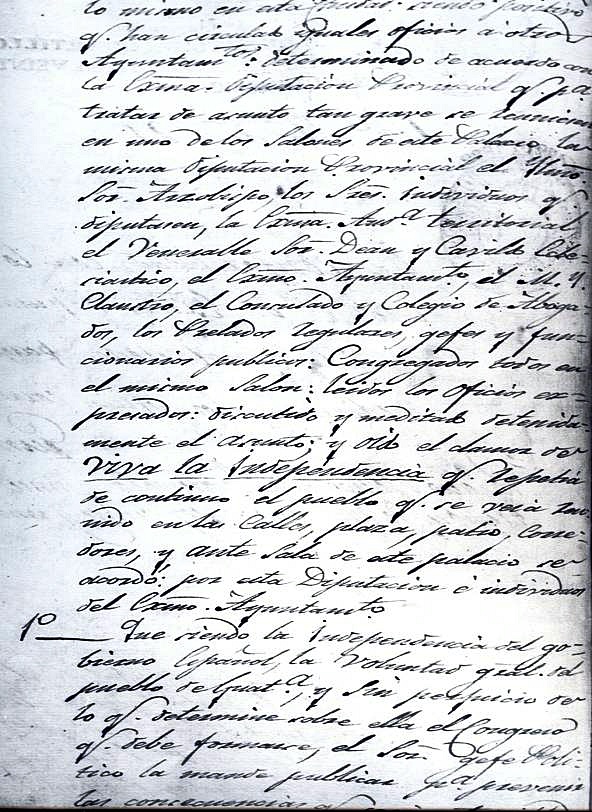 lo mismo en esta Ciudad: siendo positivo
q.e han circulado yguales oficios a otros
Ayuntam.tos: determinado de acuerdo con
la Exma. Diputacion Provincial q.e p.a
tratar de asunto tan grave se reuniesen
en uno de los Salones de este Palacio la
misma Diputacion Provincial el Yllmo
Sor. Arzobispo, los Sres. individuos q.e
diputasen, la Exma. Aud.a territorial
el Venerable Sor. Dean y Cavildo Ecle-
ciastico, el Exmo. Ayuntamto, el M. Y.
Claustro, el Consulado y Colegio de Aboga-
dos, los Prelados regulares, gefes y fun-
cionarios publicos: Congregados todos en
el mismo Salon: leidos los oficios ex-
presados: discutido y meditado detenida-
mente el asunto; y oido el clamor de
Viva la Independencia q.e repetia
de continuo el pueblo q.e se veia reu-
nido en las Calles, plaza, patio, Corre-
dores, y ante Sala de este palacio se
acordó: por esta Diputacion é individuos
del Exmo. Ayuntamto
1º Que siendo la Independencia del go-
bierno Español, la Voluntad gral. del
pueblo de Guat.a, y Sin perjuicio de
lo q.e determine sobre ella el Congreso
q.e debe formarse, el Sor. gefe Poli-
tico la mande publicar p.a prevenir
las concecuencias q.e